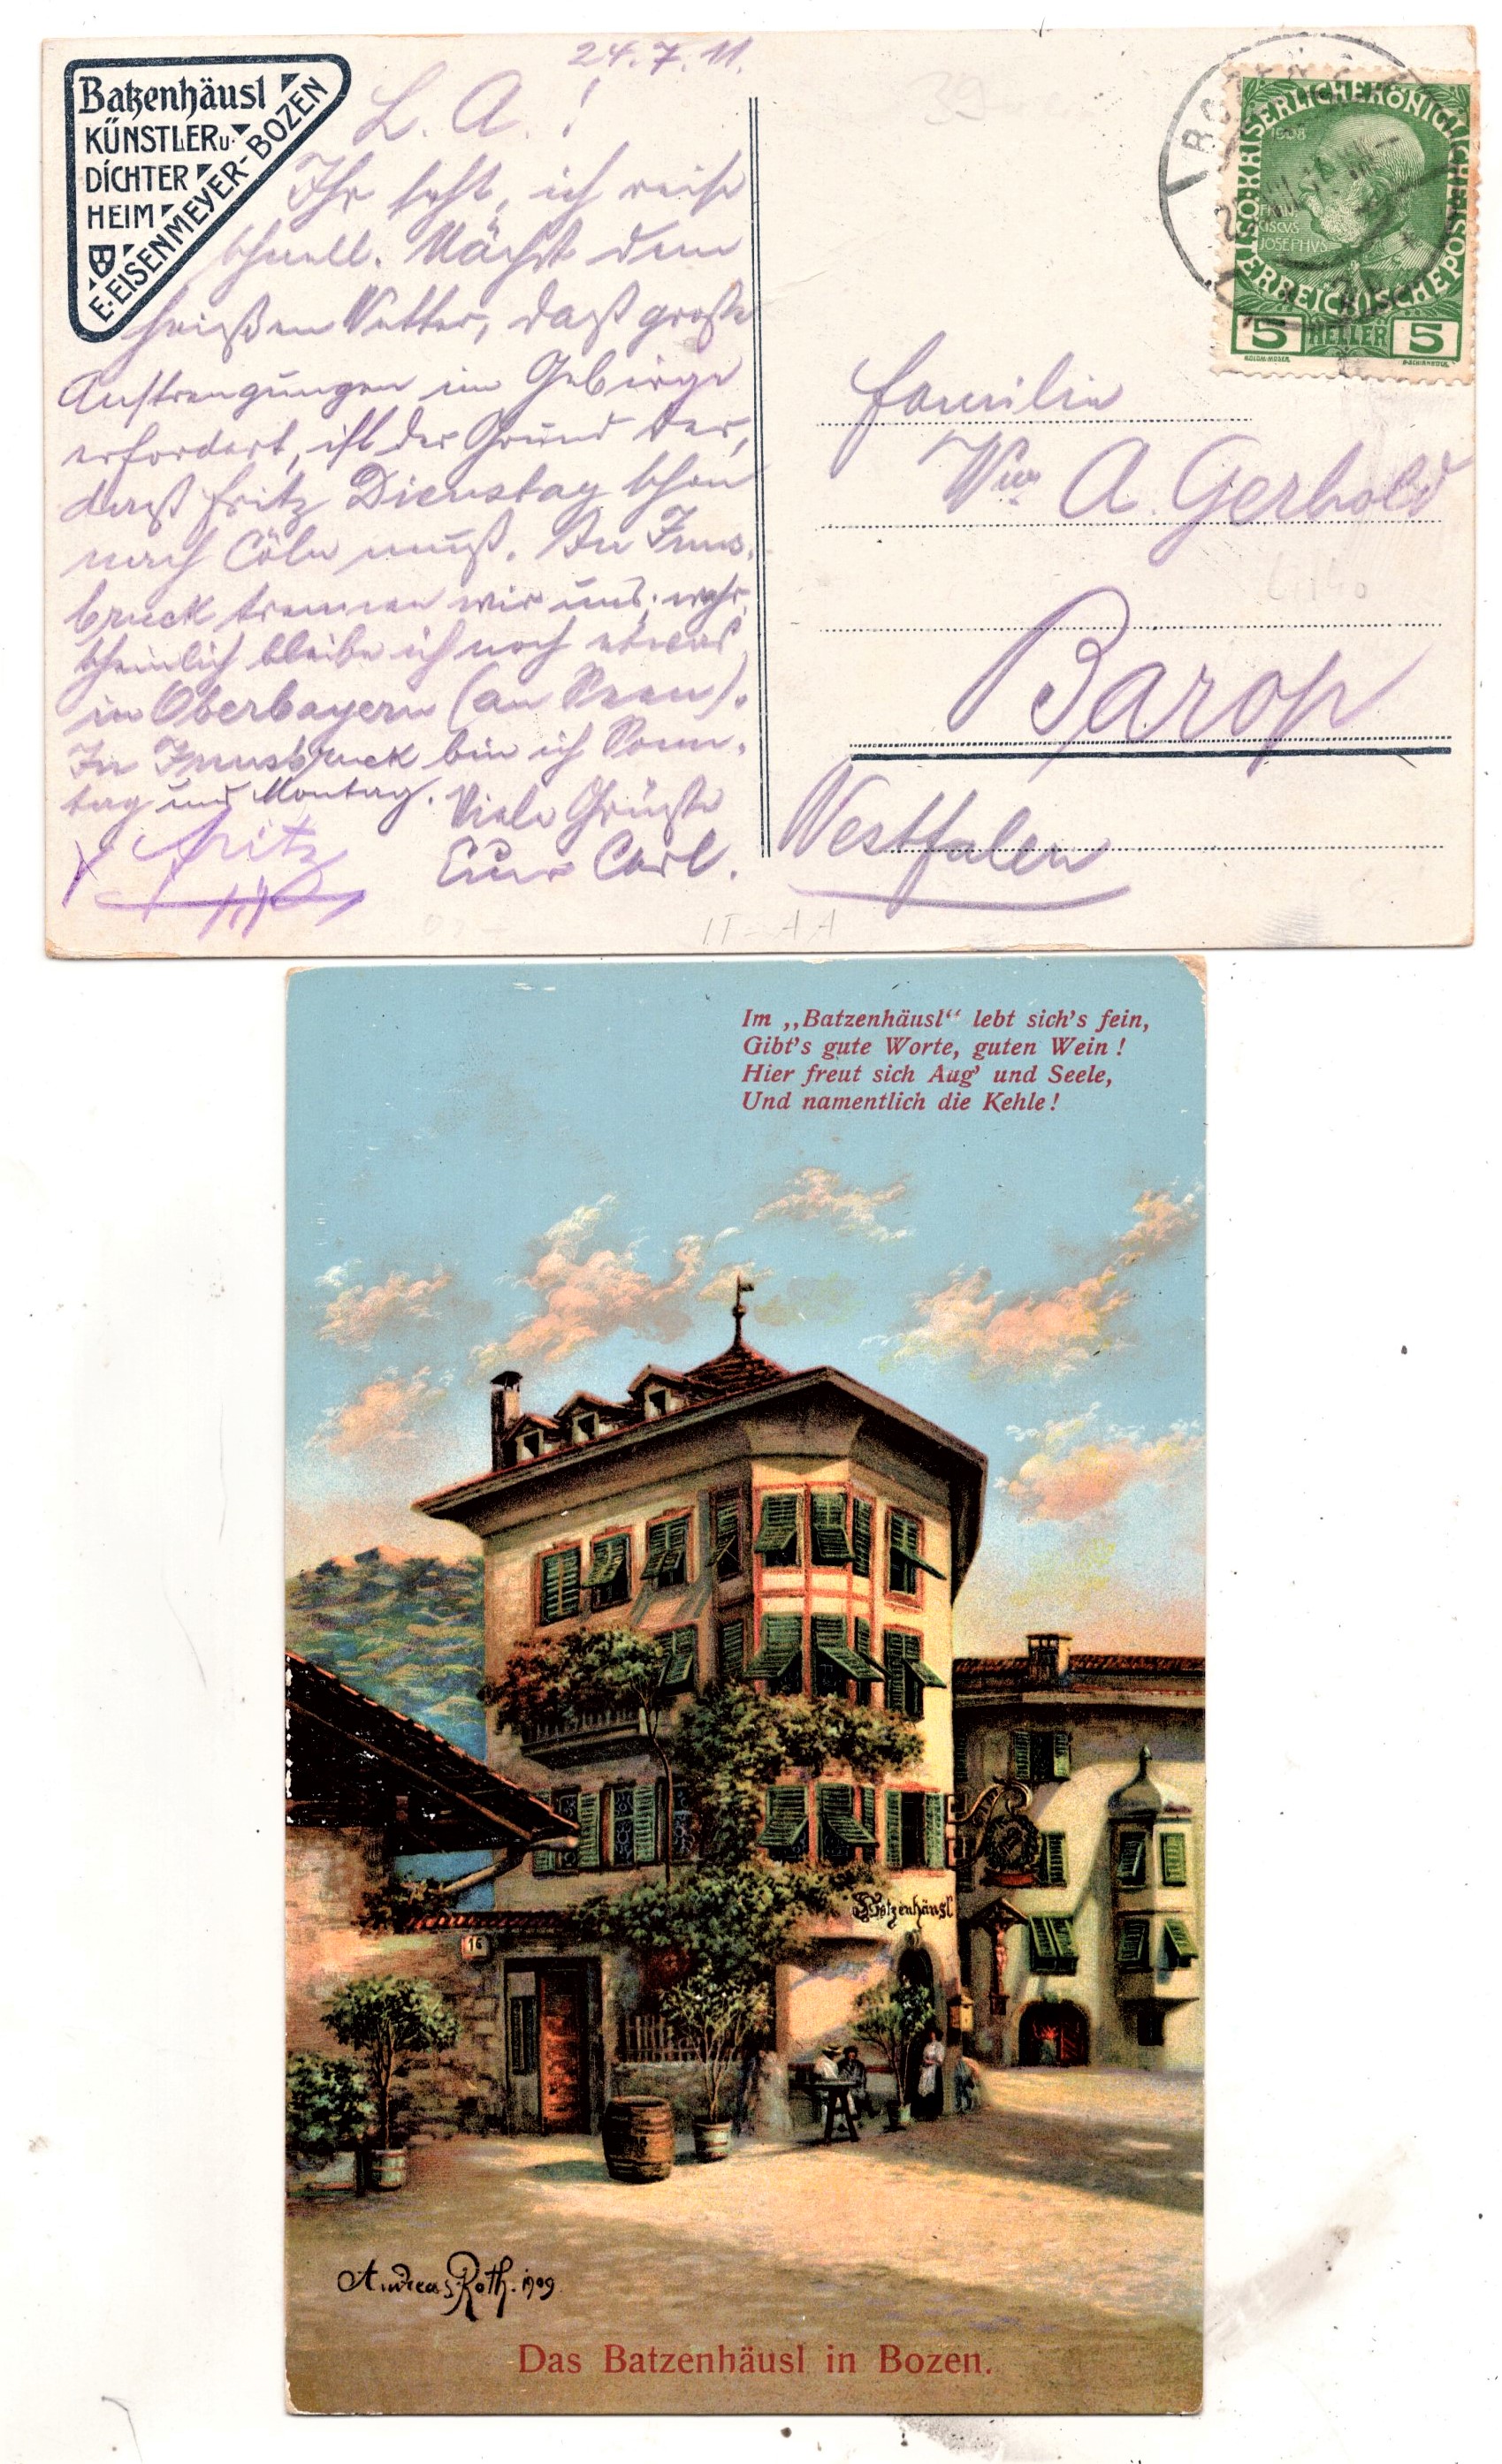 Batzenhäusl
KÜNSTLER u.
DICHTER
HEIM
E. EISENMEYER-BOZEN
24.7.11.
L. A.!
Ihr seht, ich reise
schnell. Nächst dem
heißen Wetter, daß große
Anstrengungen im Gebirge
erfordert, ist der Grund der,
daß Fritz Dienstag schon
nach Cöln muß. In Inns-
bruck trennen wir uns; wahr-
scheinlich bleibe ich noch etwas
in Oberbayern (an Seen).
In Innsbruck bin ich Sonn-
tag und Montag. Viele Grüße
Euer Carl.
Fritz
BOZEN
K.K. ÖSTERREICHISCHE POST
KAISERLICHE KÖNIGLICHE
1908
FRAN
CISCVS
JOSEPHVS
5 HELLER 5
KOLOM. MOSER.
F. SCHIRNBÖCK.
39
Familie
Ww. A. Gerbold
Barop
Westfalen
IT-AA
Im „Batzenhäusl“ lebt sich's fein,
Gibt's gute Worte, guten Wein!
Hier freut sich Aug' und Seele,
Und namentlich die Kehle!
Batzenhäusl
16
Andreas Roth. 1909
Das Batzenhäusl in Bozen.